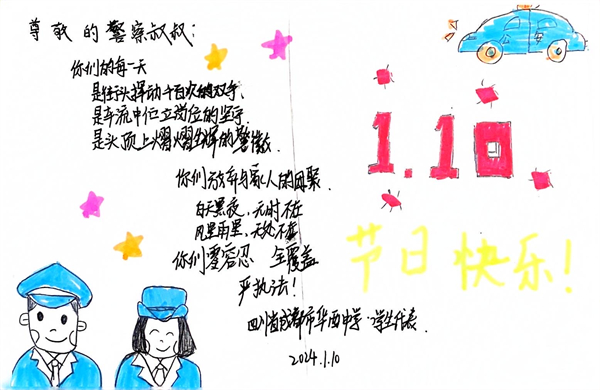 尊敬的警察叔叔:
你们的每一天
是街头挥动千百次的双手,
是车流中伫立岗位的坚守,
是头顶上熠熠生辉的警徽.
你们放弃与家人的团聚.
白天黑夜,无时不在
风里雨里,无处不在
你们零容忍 全覆盖
严执法!
四川省成都市华西中学·学生代表.
2024.1.10
1.10
节日快乐!